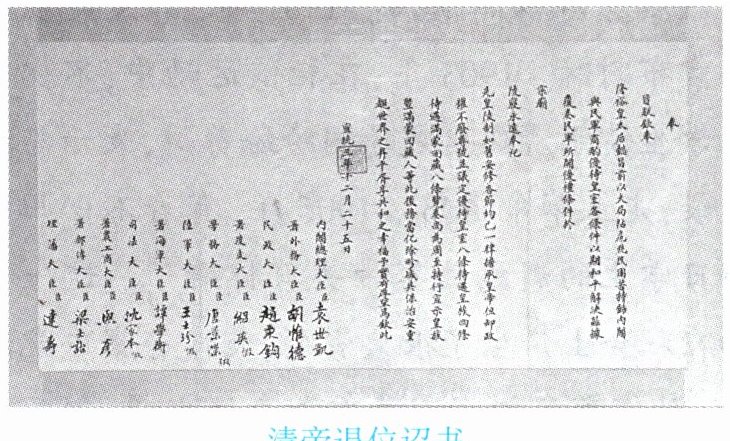 奉
旨朕欽奉
隆裕皇太后懿旨前以大局阽危兆民困苦特飭內閣
與民軍商酌優待皇室各條件以期和平解決茲據
覆奏民軍所開優禮條件於
宗廟
陵寢永遠奉祀
先皇陵制如舊妥修各節均已一律擔承皇帝但卸政
權不廢尊號並議定優待皇室八條待遇皇族四條
待遇滿蒙回藏八條覽奏尚為周至特行宣示皇族
暨滿蒙回藏人等此後務當化除畛域共保治安重
覩世界之昇平胥享共和之幸福予實有厚望焉欽此
宣統三年十二月二十五日
內閣總理大臣臣袁世凱
署外務大臣臣胡惟德
民政大臣臣趙秉鈞
署度支大臣臣紹英假
學務大臣臣唐景崇假
陸軍大臣臣王士珍假
署海軍大臣臣譚學衡
司法大臣臣沈家本假
署農工商大臣臣熙彥
署郵傳大臣臣梁士詒
理藩大臣臣達壽
清帝退位诏书